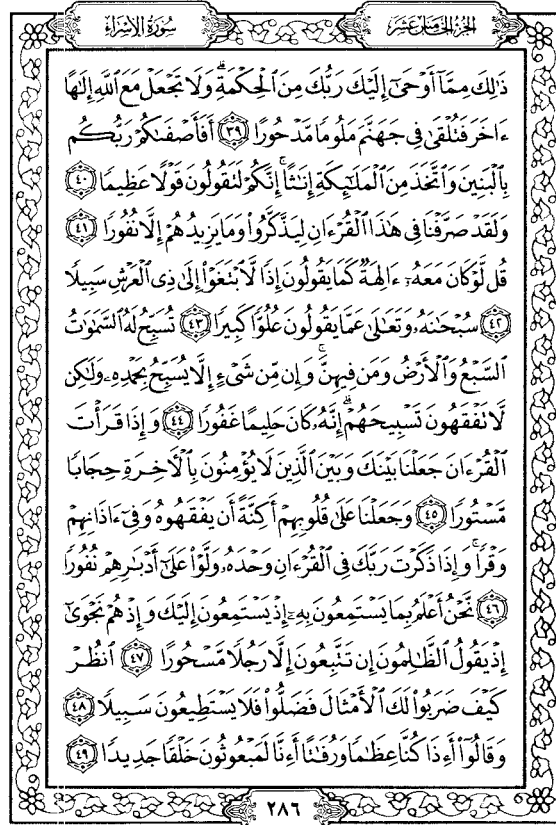 الجُزْءُ الخَامِسَ عَشَر
سُورَةُ الإِسْرَاءِ
ذَٰلِكَ مِمَّآ أَوْحَىٰٓ إِلَيْكَ رَبُّكَ مِنَ ٱلْحِكْمَةِۗ وَلَا تَجْعَلْ مَعَ ٱللَّهِ إِلَٰهًا
ءَاخَرَ فَتُلْقَىٰ فِى جَهَنَّمَ مَلُومًا مَّدْحُورًا ٣٩ أَفَأَصْفَىٰكُمْ رَبُّكُم
بِٱلْبَنِينَ وَٱتَّخَذَ مِنَ ٱلْمَلَٰٓئِكَةِ إِنَٰثًاۚ إِنَّكُمْ لَتَقُولُونَ قَوْلًا عَظِيمًا ٤٠
وَلَقَدْ صَرَّفْنَا فِى هَٰذَا ٱلْقُرْءَانِ لِيَذَّكَّرُوا۟ وَمَا يَزِيدُهُمْ إِلَّا نُفُورًا ٤١
قُل لَّوْ كَانَ مَعَهُۥٓ ءَالِهَةٌ كَمَا يَقُولُونَ إِذًا لَّٱبْتَغَوْا۟ إِلَىٰ ذِى ٱلْعَرْشِ سَبِيلًا
٤٢ سُبْحَٰنَهُۥ وَتَعَٰلَىٰ عَمَّا يَقُولُونَ عُلُوًّا كَبِيرًا ٤٣ تُسَبِّحُ لَهُ ٱلسَّمَٰوَٰتُ
ٱلسَّبْعُ وَٱلْأَرْضُ وَمَن فِيهِنَّۚ وَإِن مِّن شَىْءٍ إِلَّا يُسَبِّحُ بِحَمْدِهِۦ وَلَٰكِن
لَّا تَفْقَهُونَ تَسْبِيحَهُمْۗ إِنَّهُۥ كَانَ حَلِيمًا غَفُورًا ٤٤ وَإِذَا قَرَأْتَ
ٱلْقُرْءَانَ جَعَلْنَا بَيْنَكَ وَبَيْنَ ٱلَّذِينَ لَا يُؤْمِنُونَ بِٱلْءَاخِرَةِ حِجَابًا
مَّسْتُورًا ٤٥ وَجَعَلْنَا عَلَىٰ قُلُوبِهِمْ أَكِنَّةً أَن يَفْقَهُوهُ وَفِىٓ ءَاذَانِهِمْ
وَقْرًاۚ وَإِذَا ذَكَرْتَ رَبَّكَ فِى ٱلْقُرْءَانِ وَحْدَهُۥ وَلَّوْا۟ عَلَىٰٓ أَدْبَٰرِهِمْ نُفُورًا
٤٦ نَّحْنُ أَعْلَمُ بِمَا يَسْتَمِعُونَ بِهِۦٓ إِذْ يَسْتَمِعُونَ إِلَيْكَ وَإِذْ هُمْ نَجْوَىٰٓ
إِذْ يَقُولُ ٱلظَّٰلِمُونَ إِن تَتَّبِعُونَ إِلَّا رَجُلًا مَّسْحُورًا ٤٧ ٱنظُرْ
كَيْفَ ضَرَبُوا۟ لَكَ ٱلْأَمْثَالَ فَضَلُّوا۟ فَلَا يَسْتَطِيعُونَ سَبِيلًا ٤٨
وَقَالُوٓا۟ أَءِذَا كُنَّا عِظَٰمًا وَرُفَٰتًا أَءِنَّا لَمَبْعُوثُونَ خَلْقًا جَدِيدًا ٤٩
٢٨٦